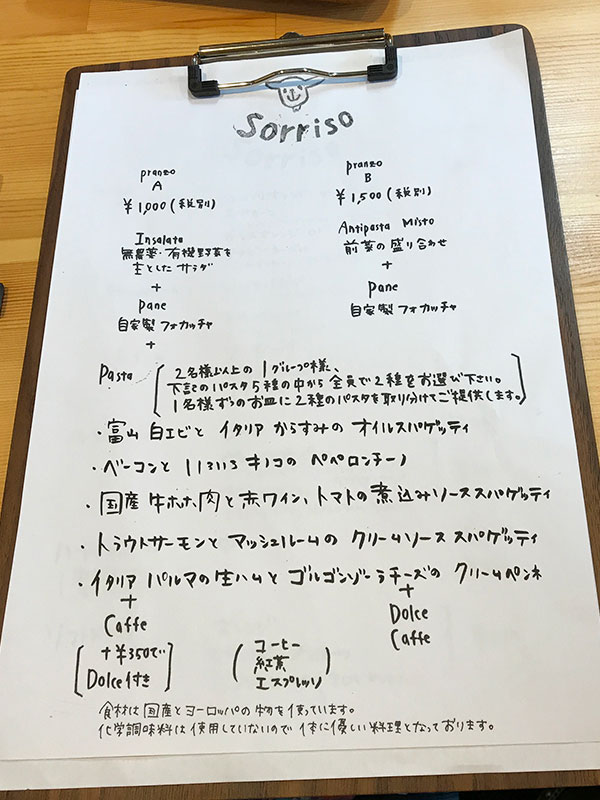 Sorriso
pranzo
A
¥1,000(税別)
Insalata
無農薬・有機野菜を
主としたサラダ
+
pane
自家製フォカッチャ
+
pranzo
B
¥1,500(税別)
Antipasta Misto
前菜の盛り合わせ
+
pane
自家製フォカッチャ
Pasta
2名様以上の1グループ様、
下記のパスタ5種の中から全員で2種をお選び下さい。
1名様ずつのお皿に2種のパスタを取り分けてご提供します。
・富山 白エビと イタリア からすみの オイルスパゲッティ
・ベーコンと いろいろキノコの ペペロンチーノ
・国産 牛ホホ肉と赤ワイン、トマトの煮込みソーススパゲッティ
・トラウトサーモンと マッシュルームの クリームソース スパゲッティ
・イタリア パルマの生ハムと ゴルゴンゾーラチーズの クリームペンネ
+
Caffe
+¥350で
Dolce付き
コーヒー
紅茶
エスプレッソ
+
Dolce
Caffe
食材は国産とヨーロッパの物を使っています。
化学調味料は使用していないので体に優しい料理となっております。